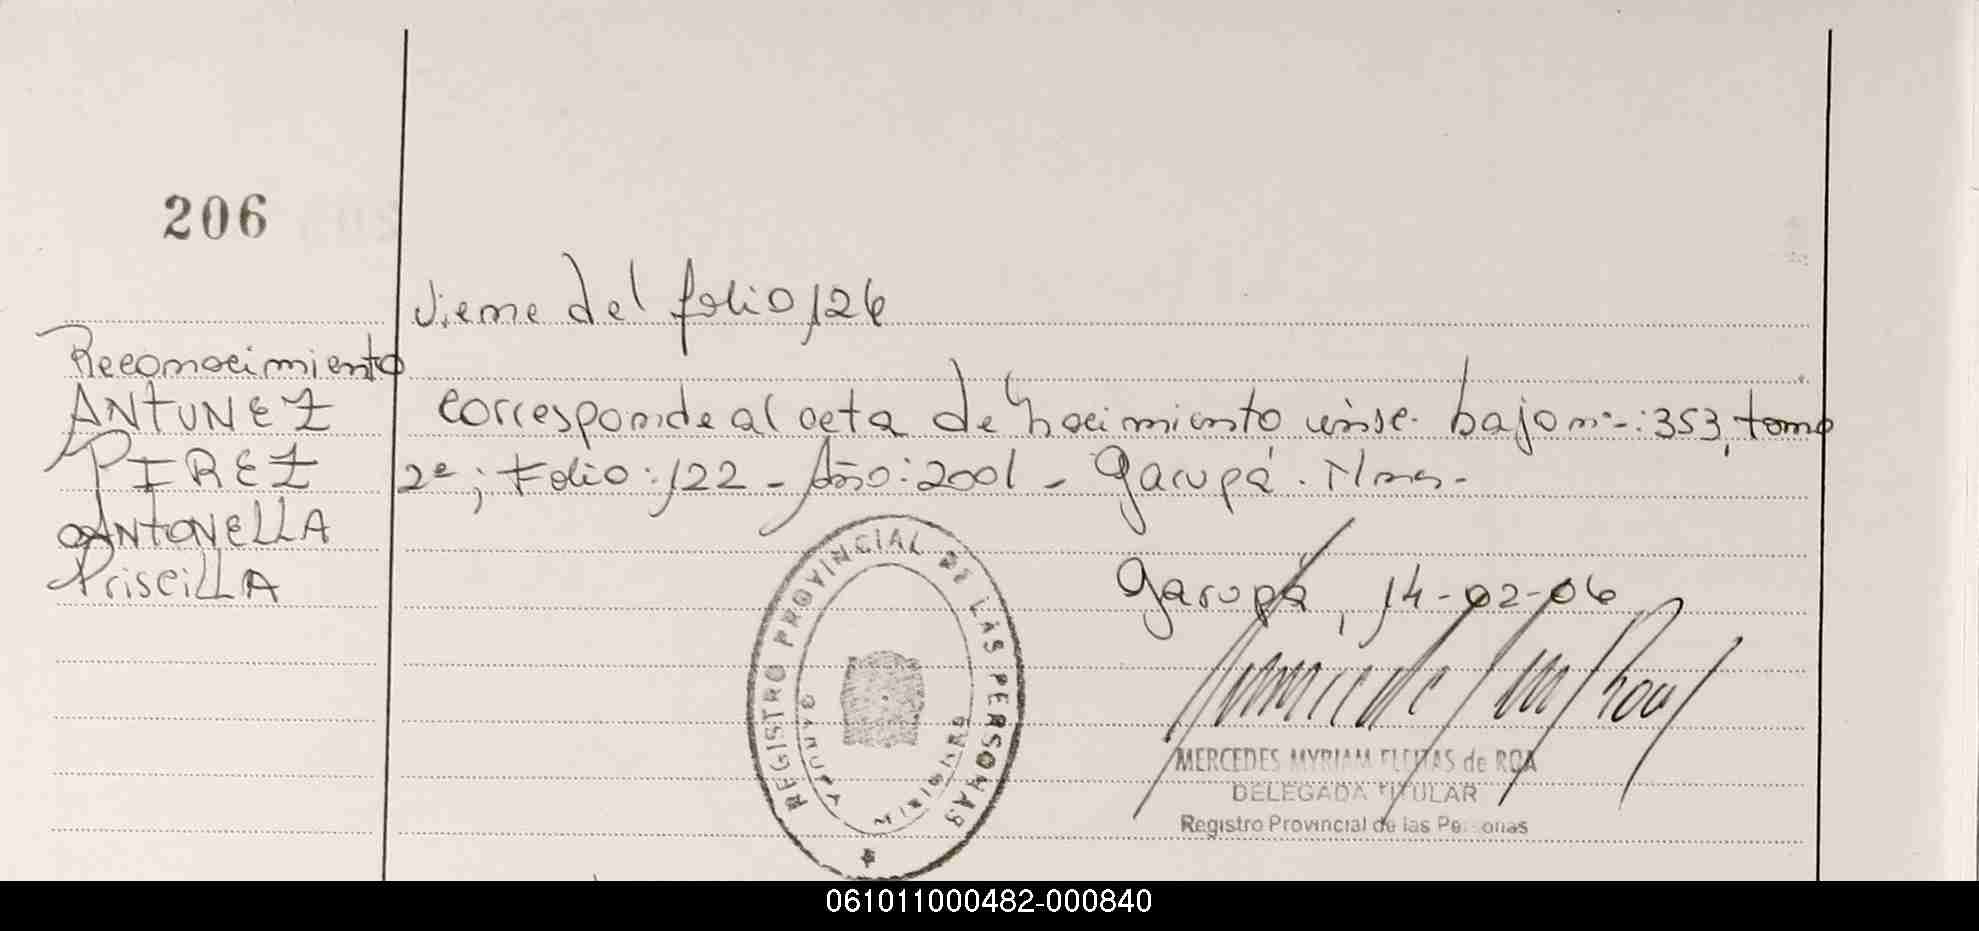 206
Viene del folio 126
Reconocimiento
ANTUNEZ
PIREZ
ANTONELLA
Priscilla
corresponde al acta de Nacimiento insc. bajo nº-: 353, tomo
2º; Folio: 122 - Año: 2001 - Garupá. Mnes.-
Garupá, 14-02-06
REGISTRO PROVINCIAL DE LAS PERSONAS
MERCEDES MYRIAM FLEITAS de ROA
DELEGADA TITULAR
Registro Provincial de las Personas
061011000482-000840